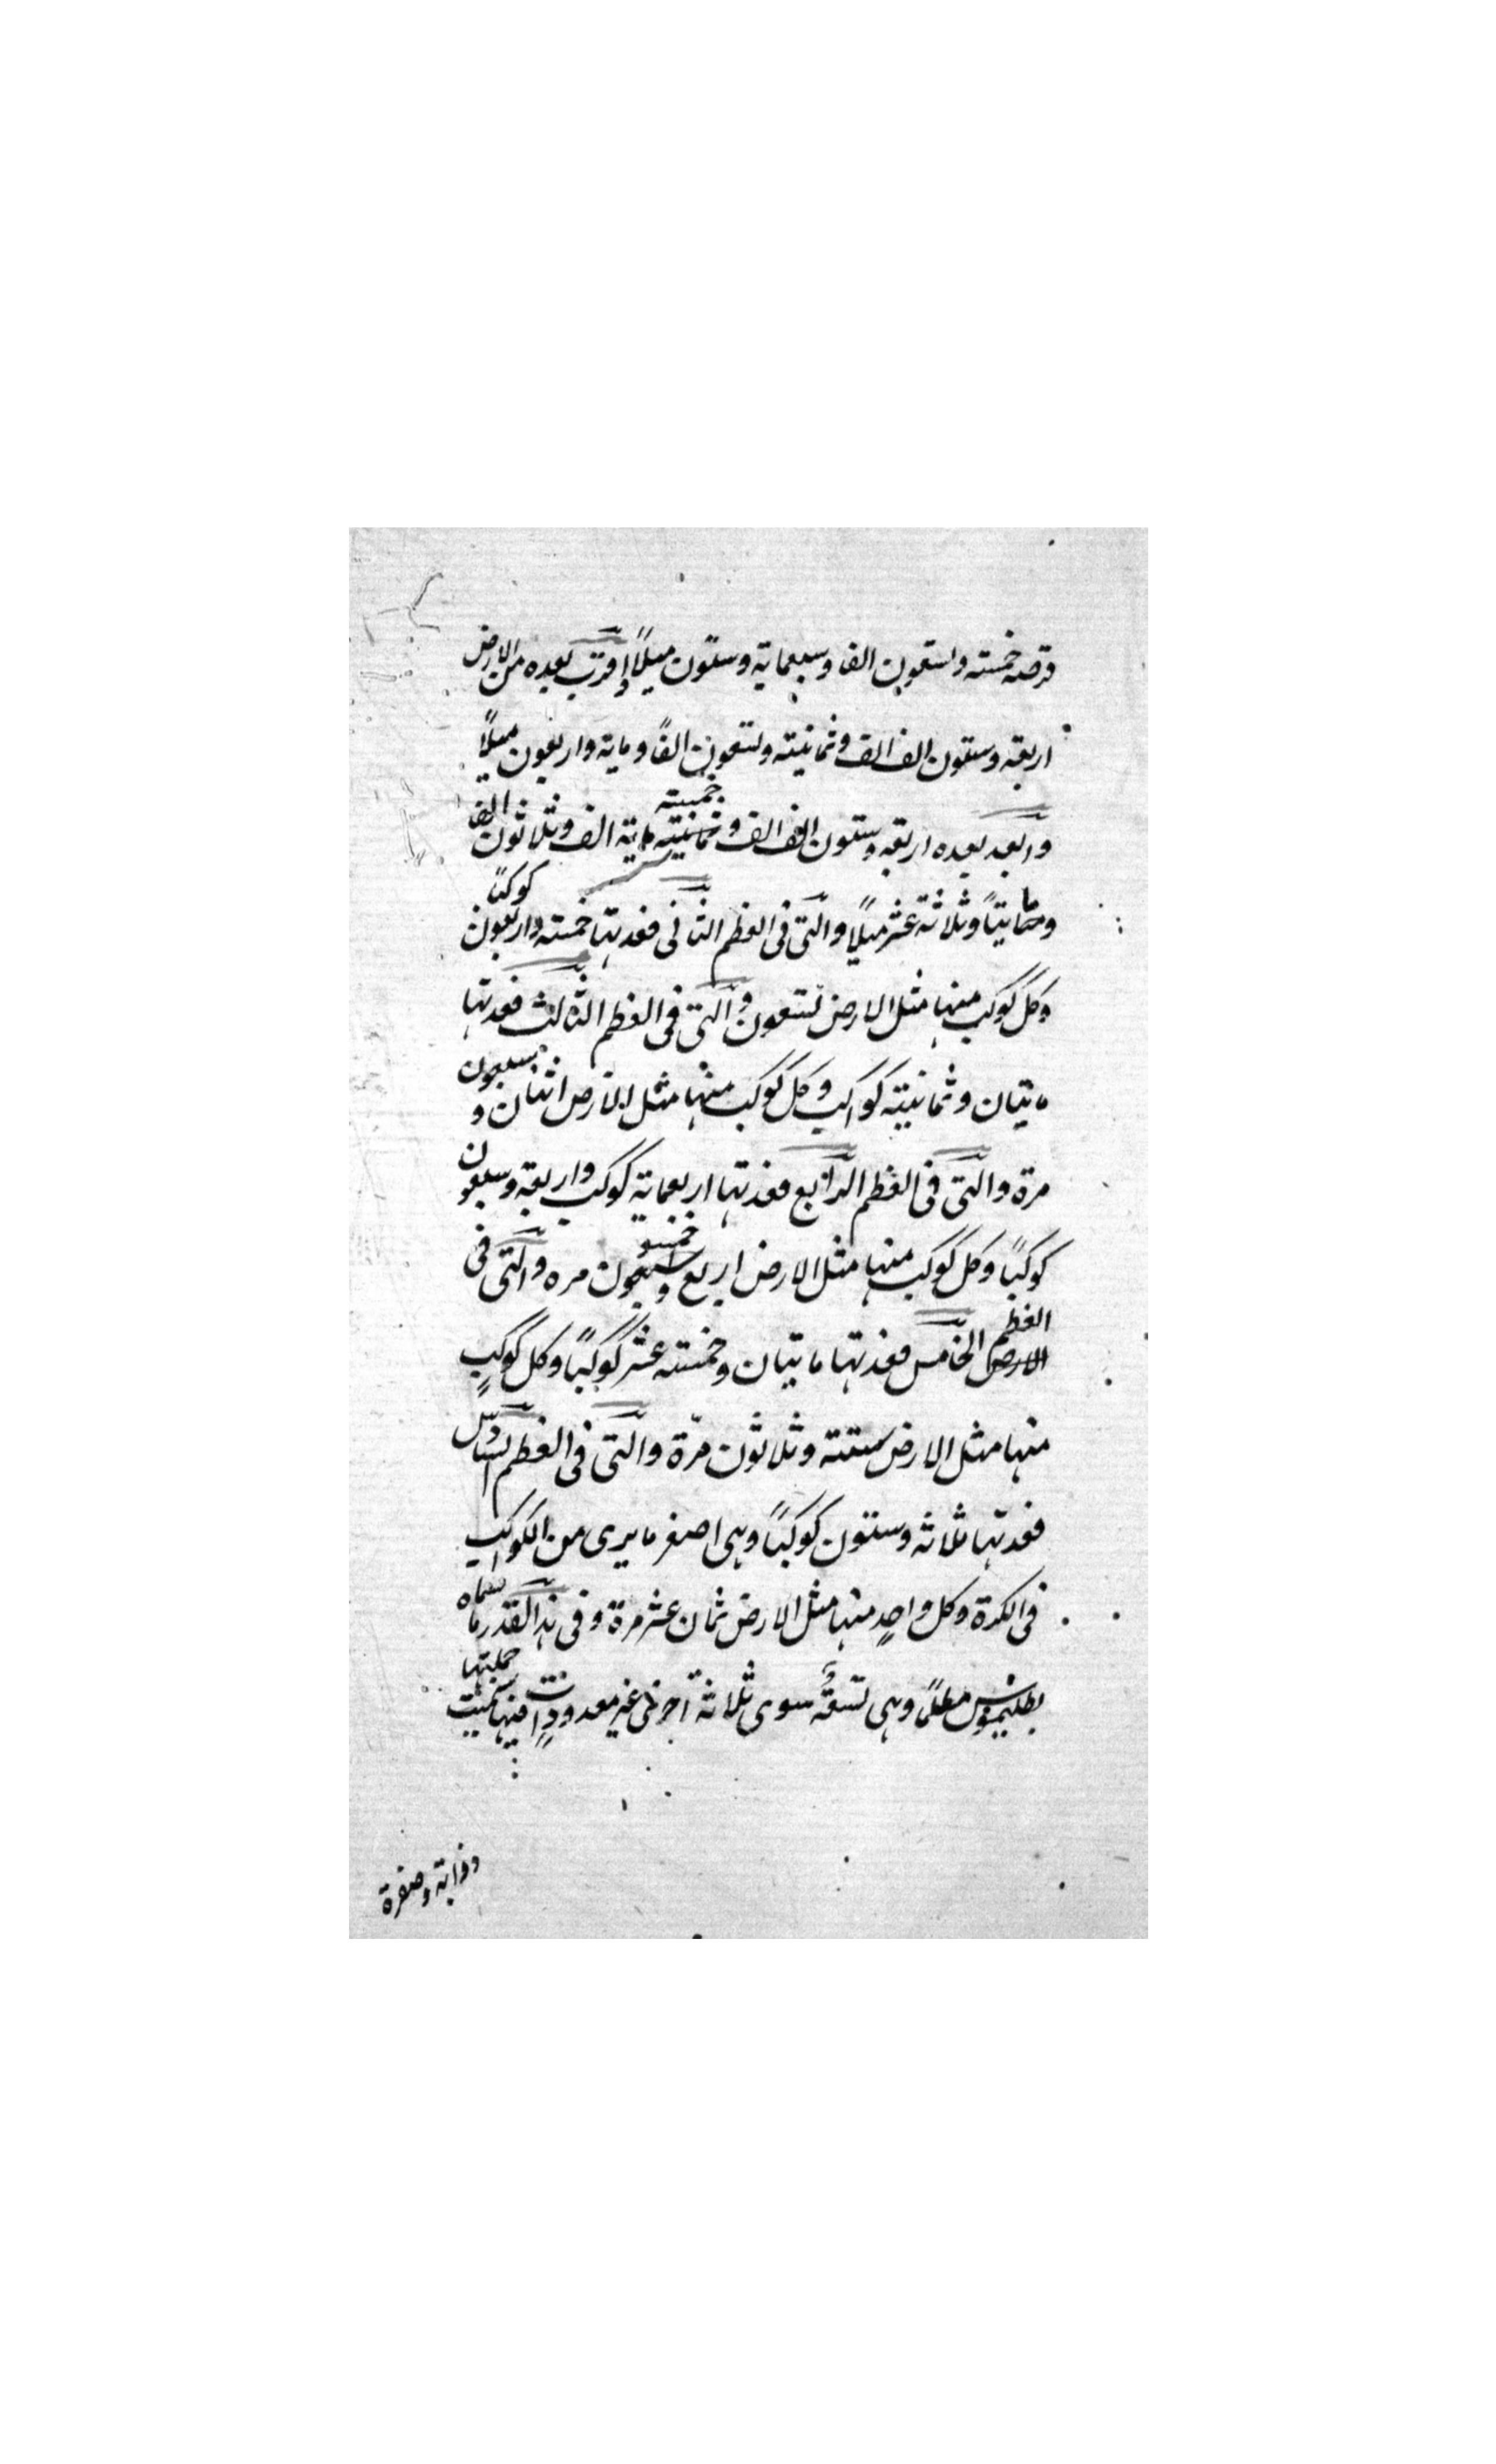 قرصه خمسة وتسعون الفا وسبعماية وستون ميلاً واقرب بعده من الارض
اربعة وستون الف الف وثمانية وتسعون الفاً وماية واربعون ميلاً
وابعد بعده اربعة وستون الف الف وخمسة ماية الف وثلاثون الفا
وماتيتاً وثلاثة عشر ميلاً والتى فى العظم الثانى فعدتها خمسة واربعون كوكباً
وكل كوكب منها مثل الارض تسعون والتى فى العظم الثالث فعدتها
مايتان وثمانية كواكب وكل كوكب منها مثل الارض اثنان وسبعون
مرة والتى فى العظم الرابع فعدتها اربعماية كوكب واربعة وسبعون
كوكباً وكل كوكب منها مثل الارض اربع وخمسون مره والتى فى
العظم الخامس فعدتها مايتان وخمسة عشر كوكباً وكل كوكبٍ
منها مثل الارض ستة وثلاثون مرّة والتى فى العظم السادس
فعدتها ثلاثه وستون كوكباً وهى اصغر ما يرى من الكواكب
فى الكرة وكل واحدٍ منها مثل الارض ثمان عشر مرة وفى هذا القدر ما سماه
بطليموس مظلماً وهى تسعة سوى ثلاثة اخرى غير معدودات فيها سميت جملتها
ذوابة وصفرة